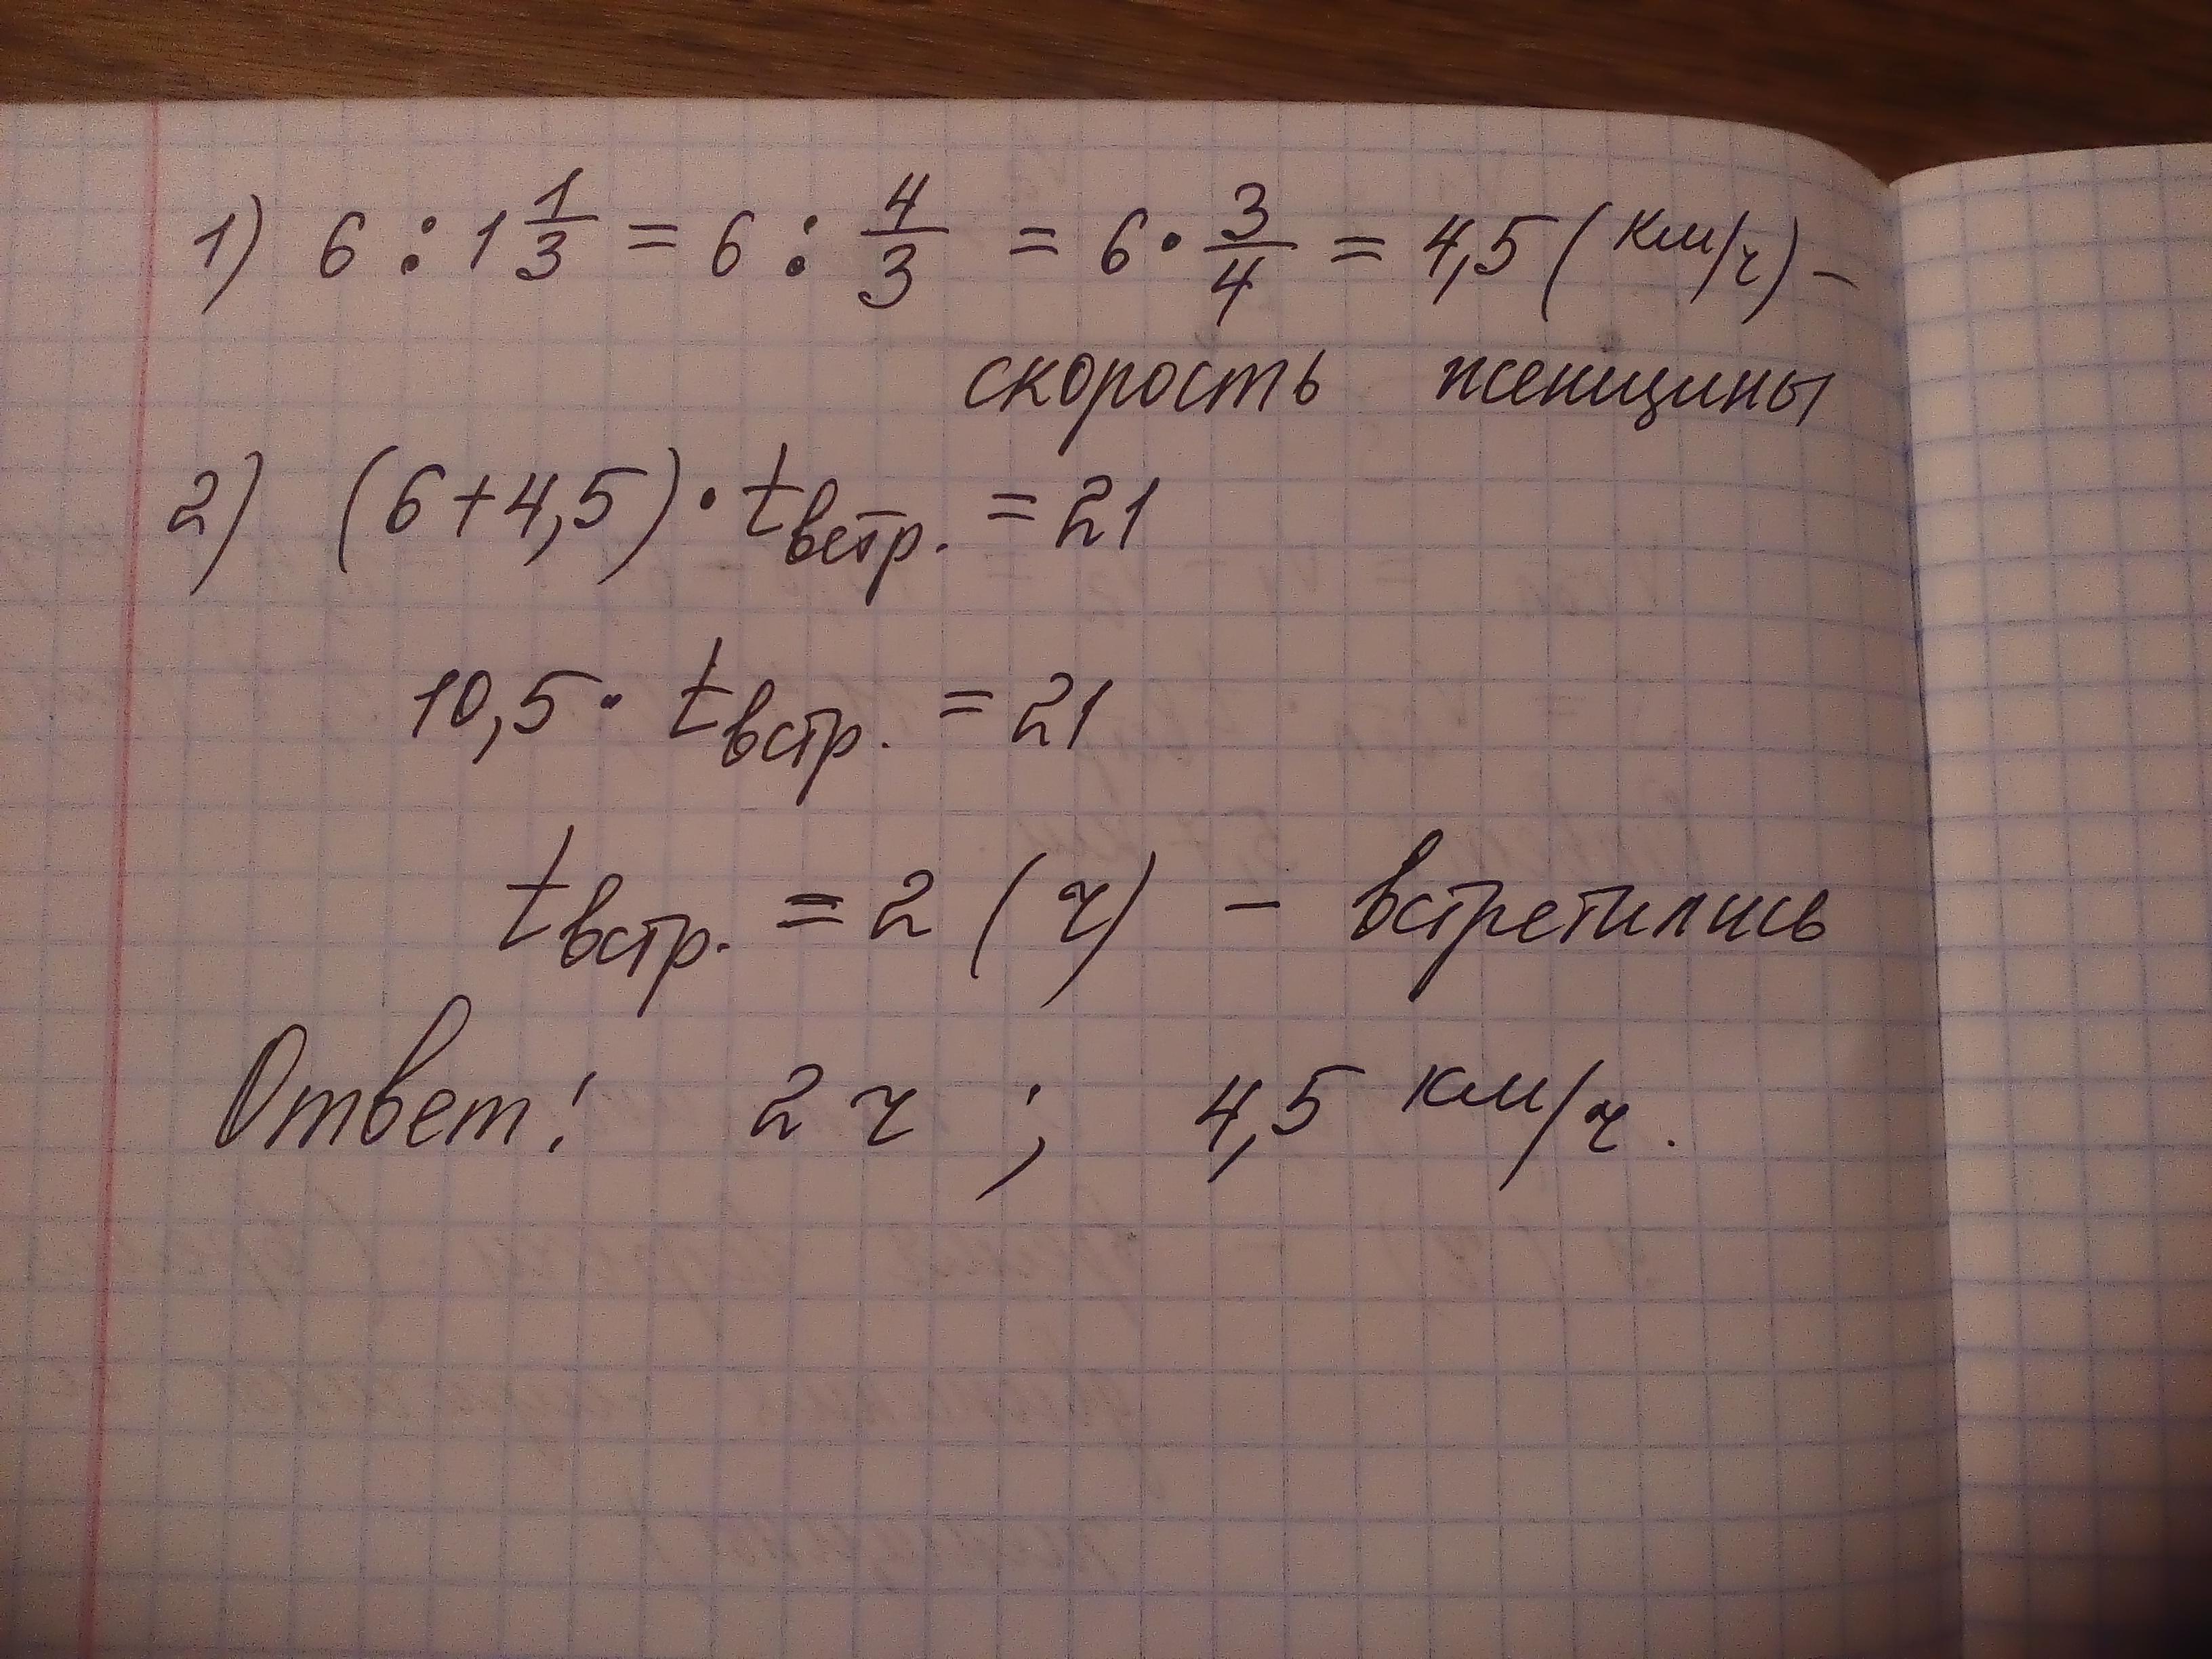 1) 6 : 1 1/3 = 6 : 4/3 = 6 · 3/4 = 4,5 (км/ч) –
скорость женщины
2) (6+4,5) · tвстр. = 21
10,5 · tвстр. = 21
tвстр. = 2 (ч) – встретились
Ответ: 2 ч ; 4,5 км/ч.